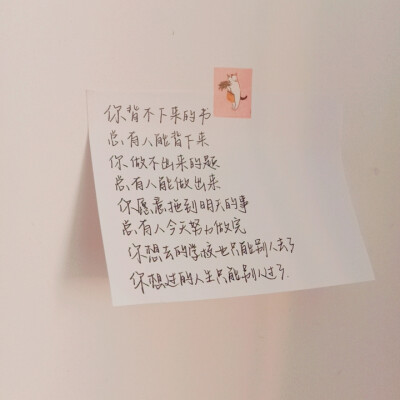 你背不下来的书
总有人能背下来
你做不出来的题
总有人能做出来
你愿意拖到明天的事
总有人今天努力做完
你想去的学校也只能别人去了
你想过的人生只能别人过了